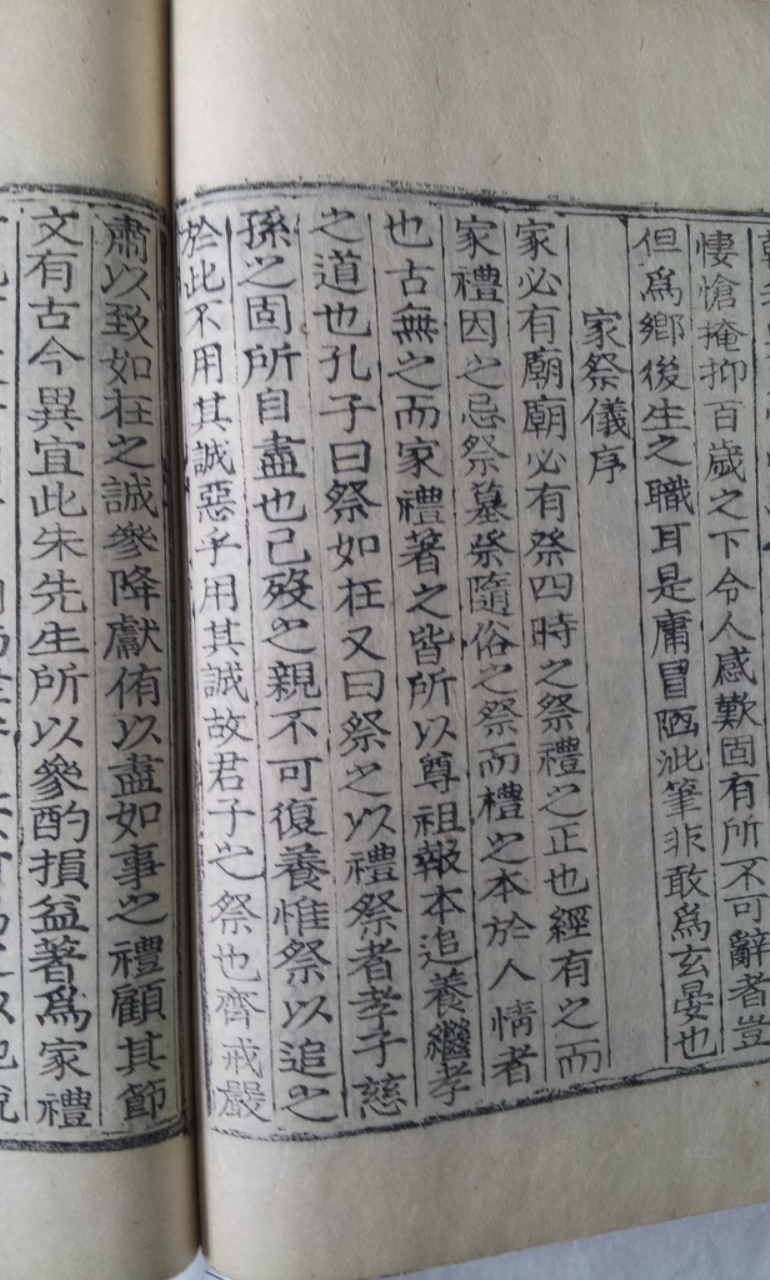 悽愴掩抑百歲之下令人感歎固有所不可辭者豈
但爲鄕後生之職耳是庸冒陋泚筆非敢爲玄晏也
家祭儀序
家必有廟廟必有祭四時之祭禮之正也經有之而
家禮因之忌祭墓祭隨俗之祭而禮之本於人情者
也古無之而家禮著之皆所以尊祖報本追養繼孝
之道也孔子曰祭如在又曰祭之以禮祭者孝子慈
孫之固所自盡也己歿之親不可復養惟祭以追之
於此不用其誠惡乎用其誠故君子之祭也齊戒嚴
肅以致如在之誠參降獻侑以盡如事之禮顧其節
文有古今異宜此朱先生所以參酌損益著爲家禮